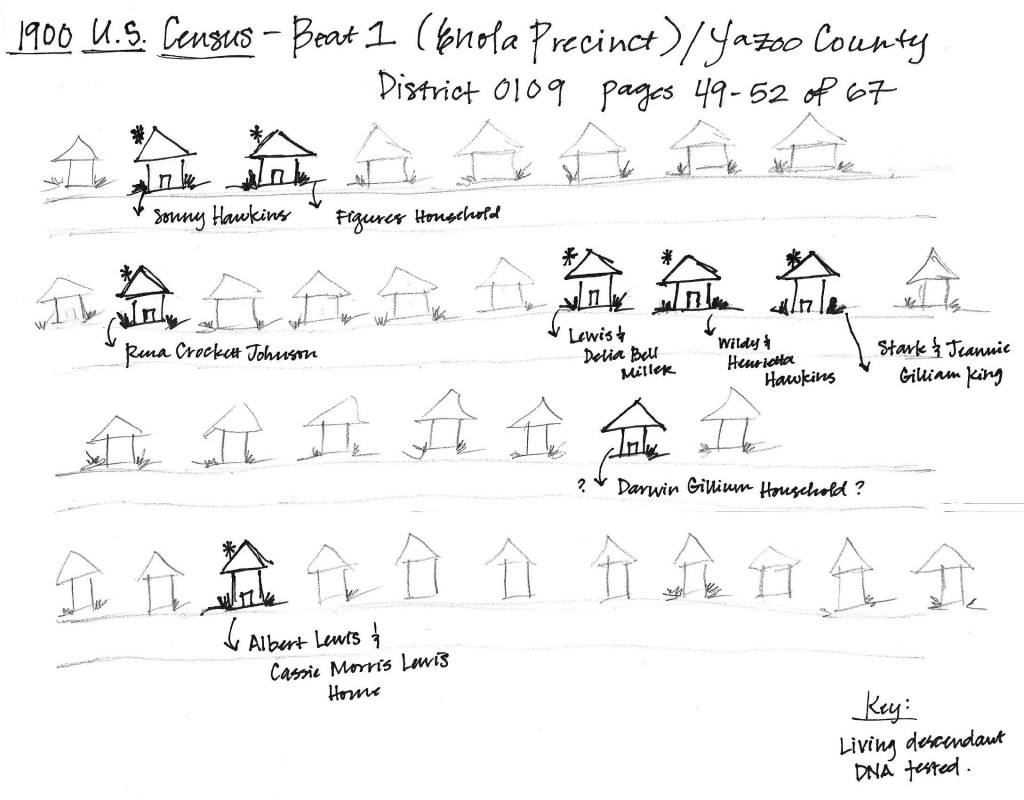 1900 U.S. Census - Beat 1 (Enola Precinct) / Yazoo County
District 0109 pages 49-52 of 67
* *
Sonny Hawkins Figures Household
* * * *
Rena Crockett Johnson
Lewis &
Delia Bell
Miller
Wildy &
Henrietta
Hawkins
Stark & Jeannie
Gilliam King
? Darwin Gillium Household ?
*
Albert Lewis &
Cassie Morris Lewis
Home
Key:
Living descendant
DNA tested.